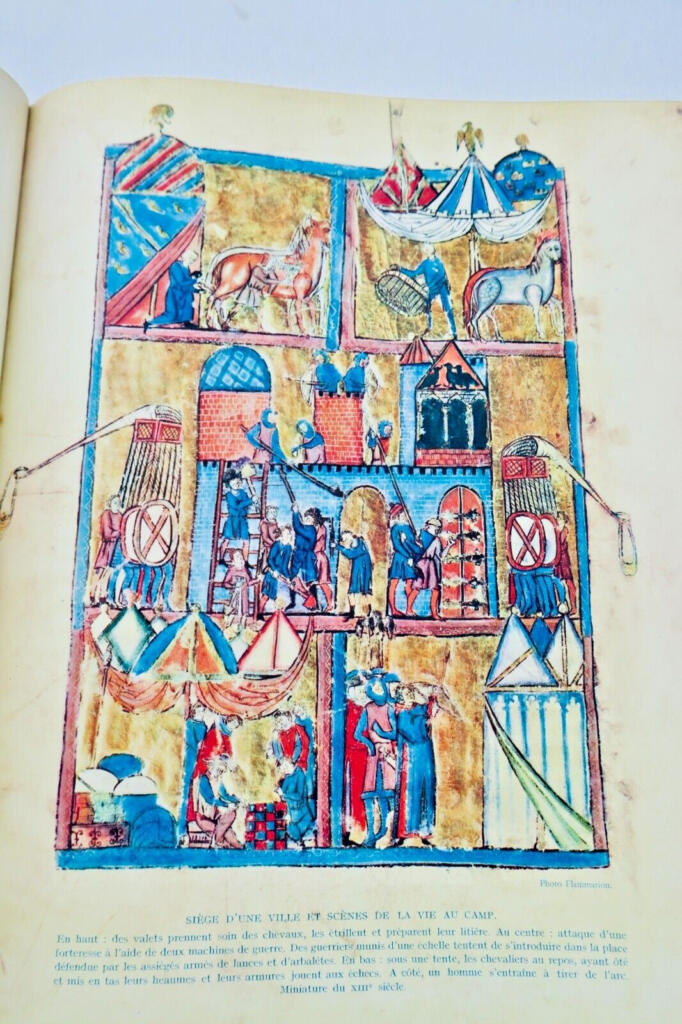 Photo Flammarion.
SIÈGE D'UNE VILLE ET SCÈNES DE LA VIE AU CAMP.
En haut : des valets prennent soin des chevaux, les étrillent et préparent leur litière. Au centre : attaque d'une
forteresse à l'aide de deux machines de guerre. Des guerriers munis d'une échelle tentent de s'introduire dans la place
défendue par les assiégés armés de lances et d'arbalètes. En bas : sous une tente, les chevaliers au repos, ayant ôté
et mis en tas leurs heaumes et leurs armures jouent aux échecs. A côté, un homme s'entraîne à tirer de l'arc.
Miniature du XIIIe siècle.